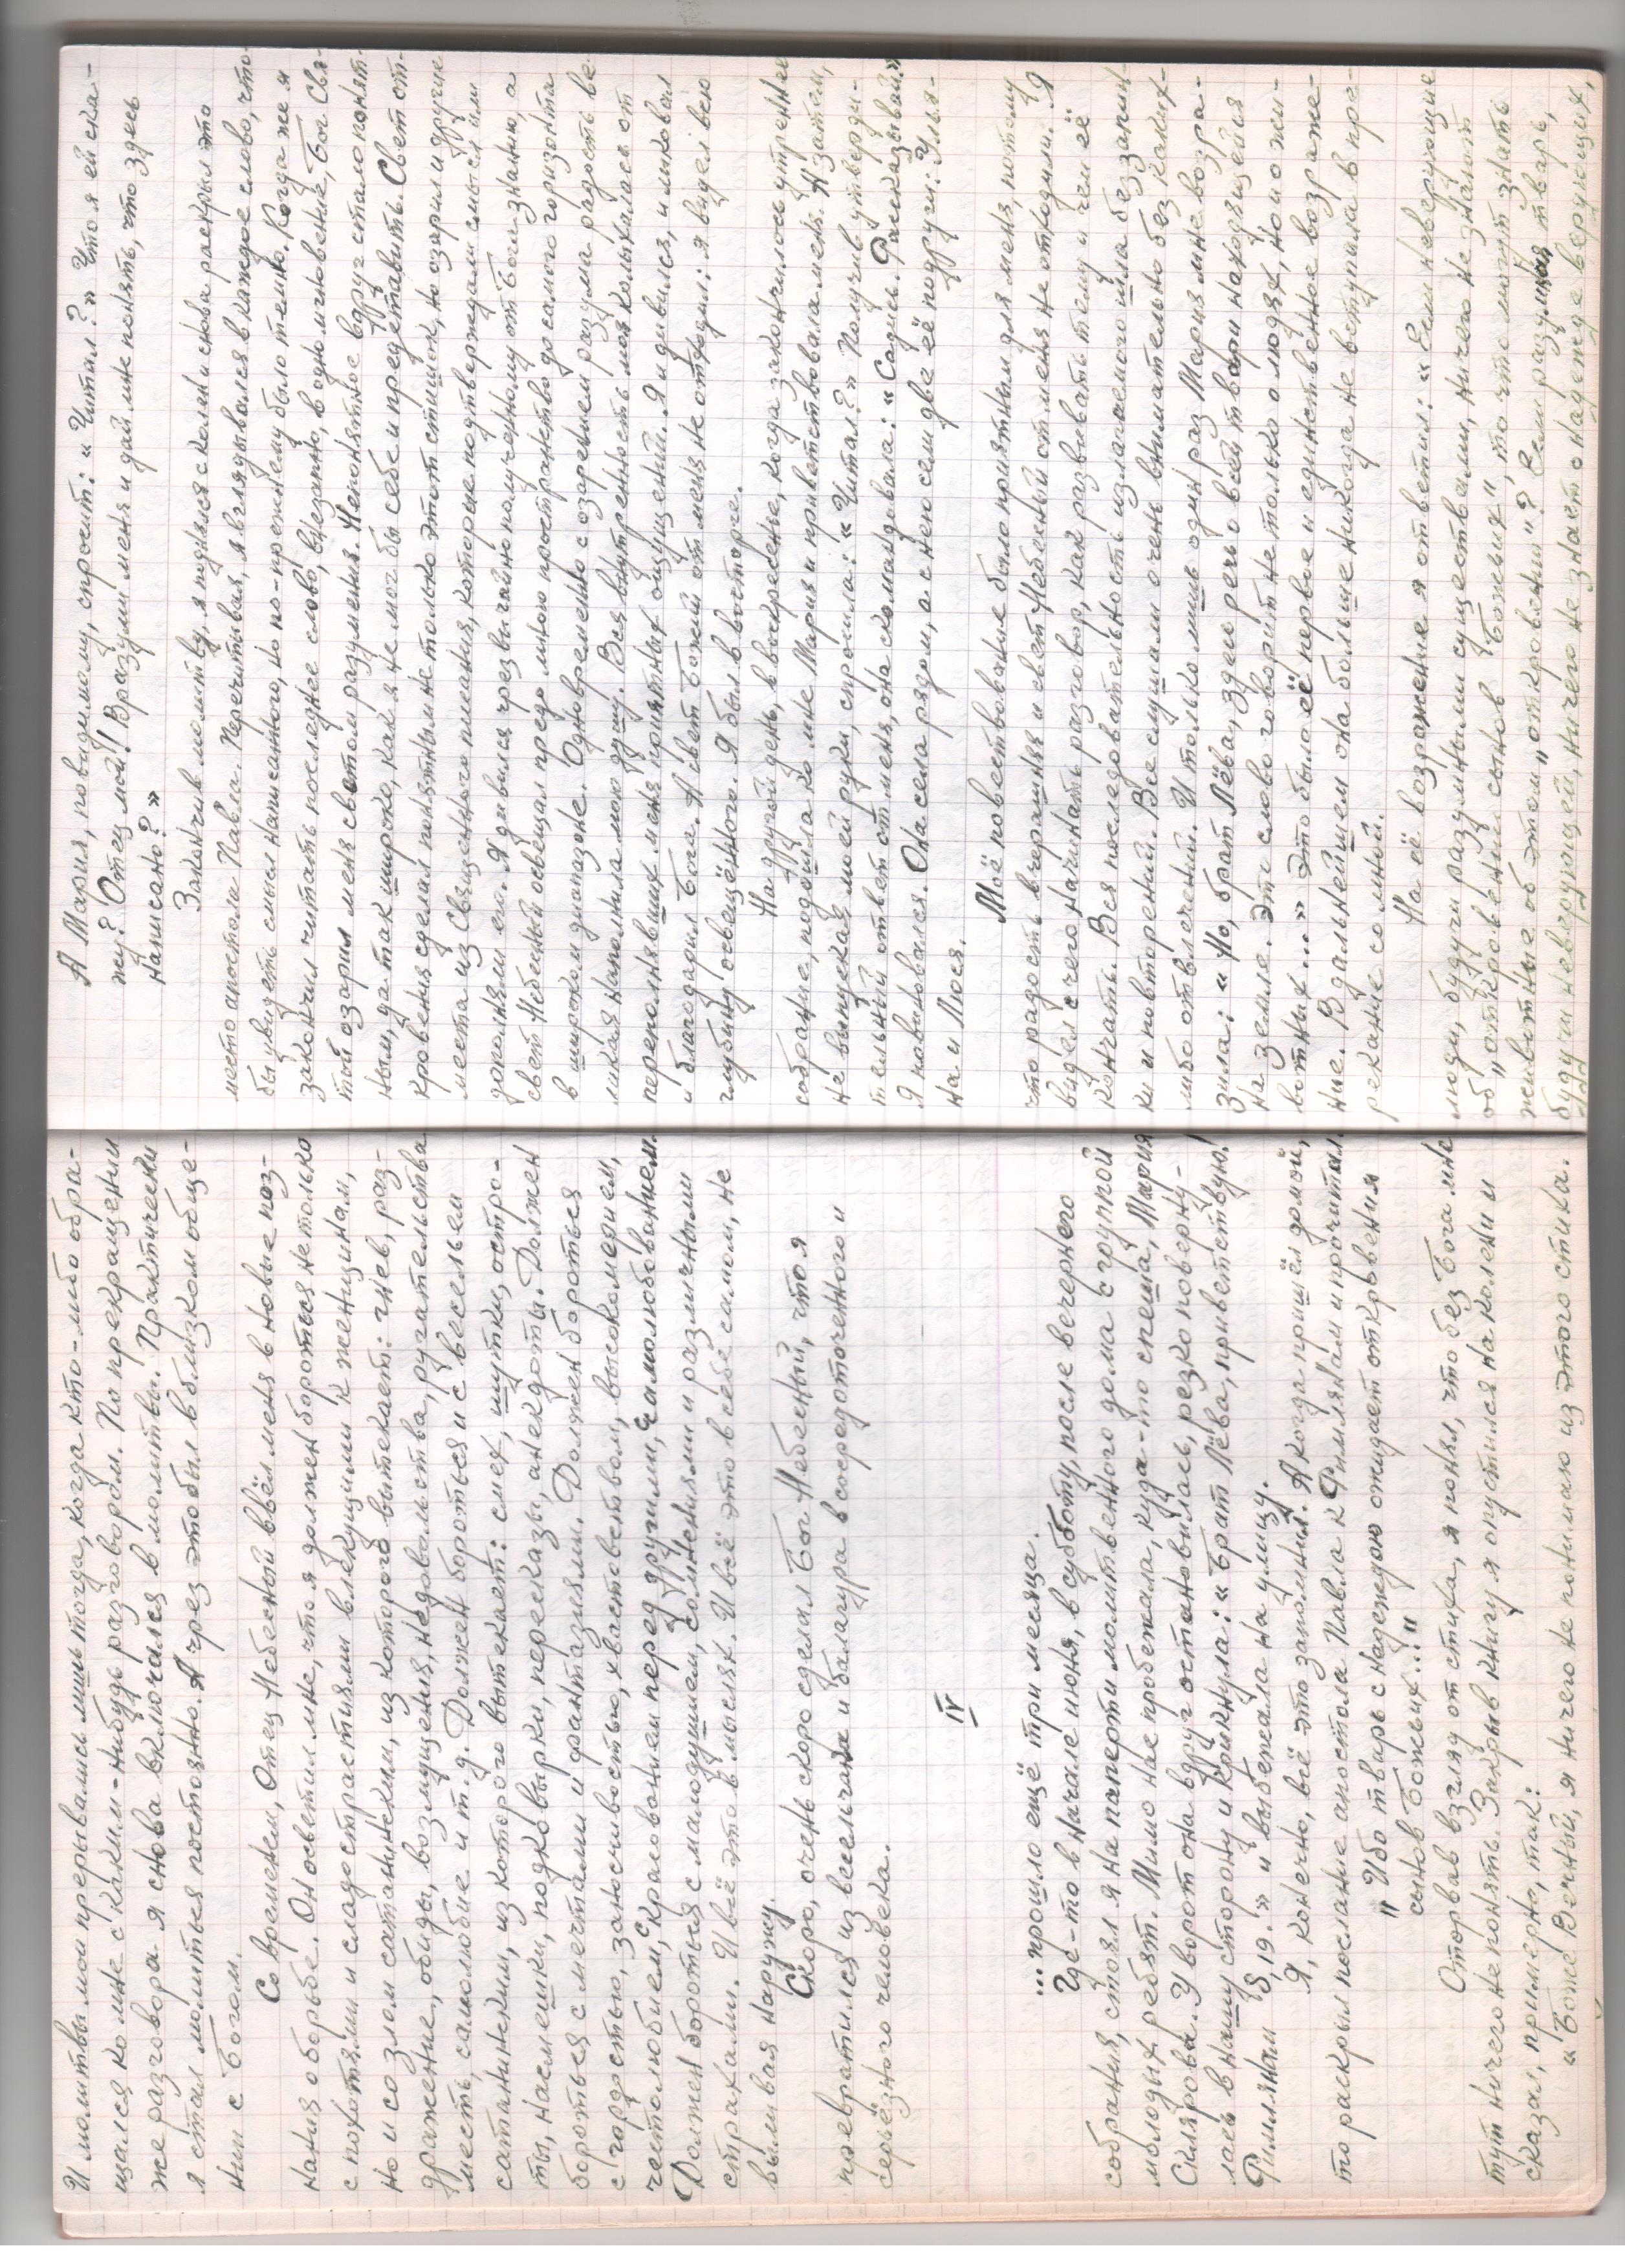 И молитвы мои прерывались лишь тогда, когда кто-либо обра-
щался ко мне с каким-нибудь разговором. По прекращении
же разговора я снова включался в молитвы. Практически
я стал молиться постоянно. А чрез это был в близком обще-
нии с Богом.
Со временем, Отец Небесный ввёл меня в новые поз-
нания о борьбе. Он осветил мне, что я должен бороться не только
с похотями и сладострастиями влекущими к женщинам,
но и со злом сатанинским, из которого вытекает: гнев, раз-
дражение, обиды, возмущения, недовольства, ругательства
месть, самолюбие и т.д. Должен бороться и с весельем
сатанинским, из которого вытекает: смех, шутки, остро-
ты, насмешки, подковырки, пересказы, анекдоты. Должен
бороться с мечтами и фантазиями. Должен бороться
с гордостью, заносчивостью, хвастовством, высокомерием,
честолюбием, красованием перед другими, самолюбованием.
Должен бороться с малодушием, сомнениями и различными
страхами. И всё это в мыслях. И всё это в себе самом, не
выливая наружу.
Скоро, очень скоро сделал Бог Небесный, что я
превратился из весельчака и балагура в сосредоточенного и
серьёзного человека.
IV
...прошло ещё три месяца.
Где-то в начале июня, в субботу, после вечернего
собрания, стоял я на паперти молитвенного дома с групой
молодых ребят. Мимо нас пробежала, куда-то спеша, Мария
Склярова. У ворот она вдруг остановилась, резко поверну-
лась в нашу сторону и крикнула: «Брат Лёва, приветствую!
Римлянам 8,19.» и выбежала на улицу.
Я, конечно, всё это запомнил. А когда пришёл домой,
то раскрыл послание апостола Павла к Римлянам и прочитал
"Ибо тварь с надеждою ожидает откровения
сынов Божьих..."
Оторвав взгляд от стиха, я понял, что без Бога мне
тут ничего не понять. Закрыв книгу я опустился на колени и
сказал, примерно, так:
"Боже Вечный, я ничего не понимаю из этого стиха.
А Мария, повидимому, спросит: «Читал?» Что я ей ска-
жу? Отец мой! Вразуми меня и дай мне понять, что здесь
написано?»
Закончив молитву, я поднялся с колен и снова раскрыл это
место апостола Павла. Перечитывая, я вглядывался в каждое слово, что
бы увидеть смысл написанного, но по-прежнему было темно. Когда же я
закончил читать последнее слово, внезапно, в одно мгновение, Бог Свя-
тый озарил меня светом разумения. Непонятное вдруг стало понят-
ным, да так широко, как я не мог бы себе и представить. Свет от-
кровения сделал понятным не только этот стишок, но озарил и другие
места из Священного писания, которые подтверждали смысл им
дополняли его. Я дивился чрезвычайно полученному от Бога знанию, а
свет Небесный освещал предо мною пространство до самого горизонта
в широком диапазоне. Одновременно с озарением разума радость ве-
ликая наполнила мою душу. Вся внутренность моя колыхалась от
переполнявших меня приятных ощущений. Я и дивился, и ликовал
и благодарил Бога. А свет Божий от меня не отходил: я видел всю
глубину освещённого. Я был в восторге.
На другой день, в воскресене, когда закончилось утреннее
собрание, подошла ко мне Мария и приветствовала меня. А затем,
не выпуская моей руки, спросила: «Читал?» Получив утверди-
тельный ответ от меня, она скомандовала: «Садись. Рассказывай.»
Я повиновался. Она села рядом, а с нею сели две её подруги: Улья-
на и Люся.
Моё повествование было приятным для меня, потому
что радость вчерашняя и свет Небесный от меня не отходили. Я
видел с чего начинать разговор, как развивать тему и чем её
кончать. Вся последовательность излагаемого шла без запин-
ки и повторений. Все слушали очень внимательно без каких-
либо отвлечений. И только лишь один раз Мария мне возра-
зила: «Но, брат Лёва, здесь речь о всей твари находящейся
на земле. Это слово говорит не только о людях, но и о жи-
вотных...» Это было её первое и единственное возраже-
ние. В дальнейшем она больше никогда не вступала в пре-
рекание со мной.
На её возражение я ответил: «Если неверующие
люди, будучи разумными существами, ничего не знают
об "откровении сынов Божьих", то что могут знать
животные об этом "откровении"? Если разумная тварь,
будучи неверующей, ничего не знает о надежде верующих,